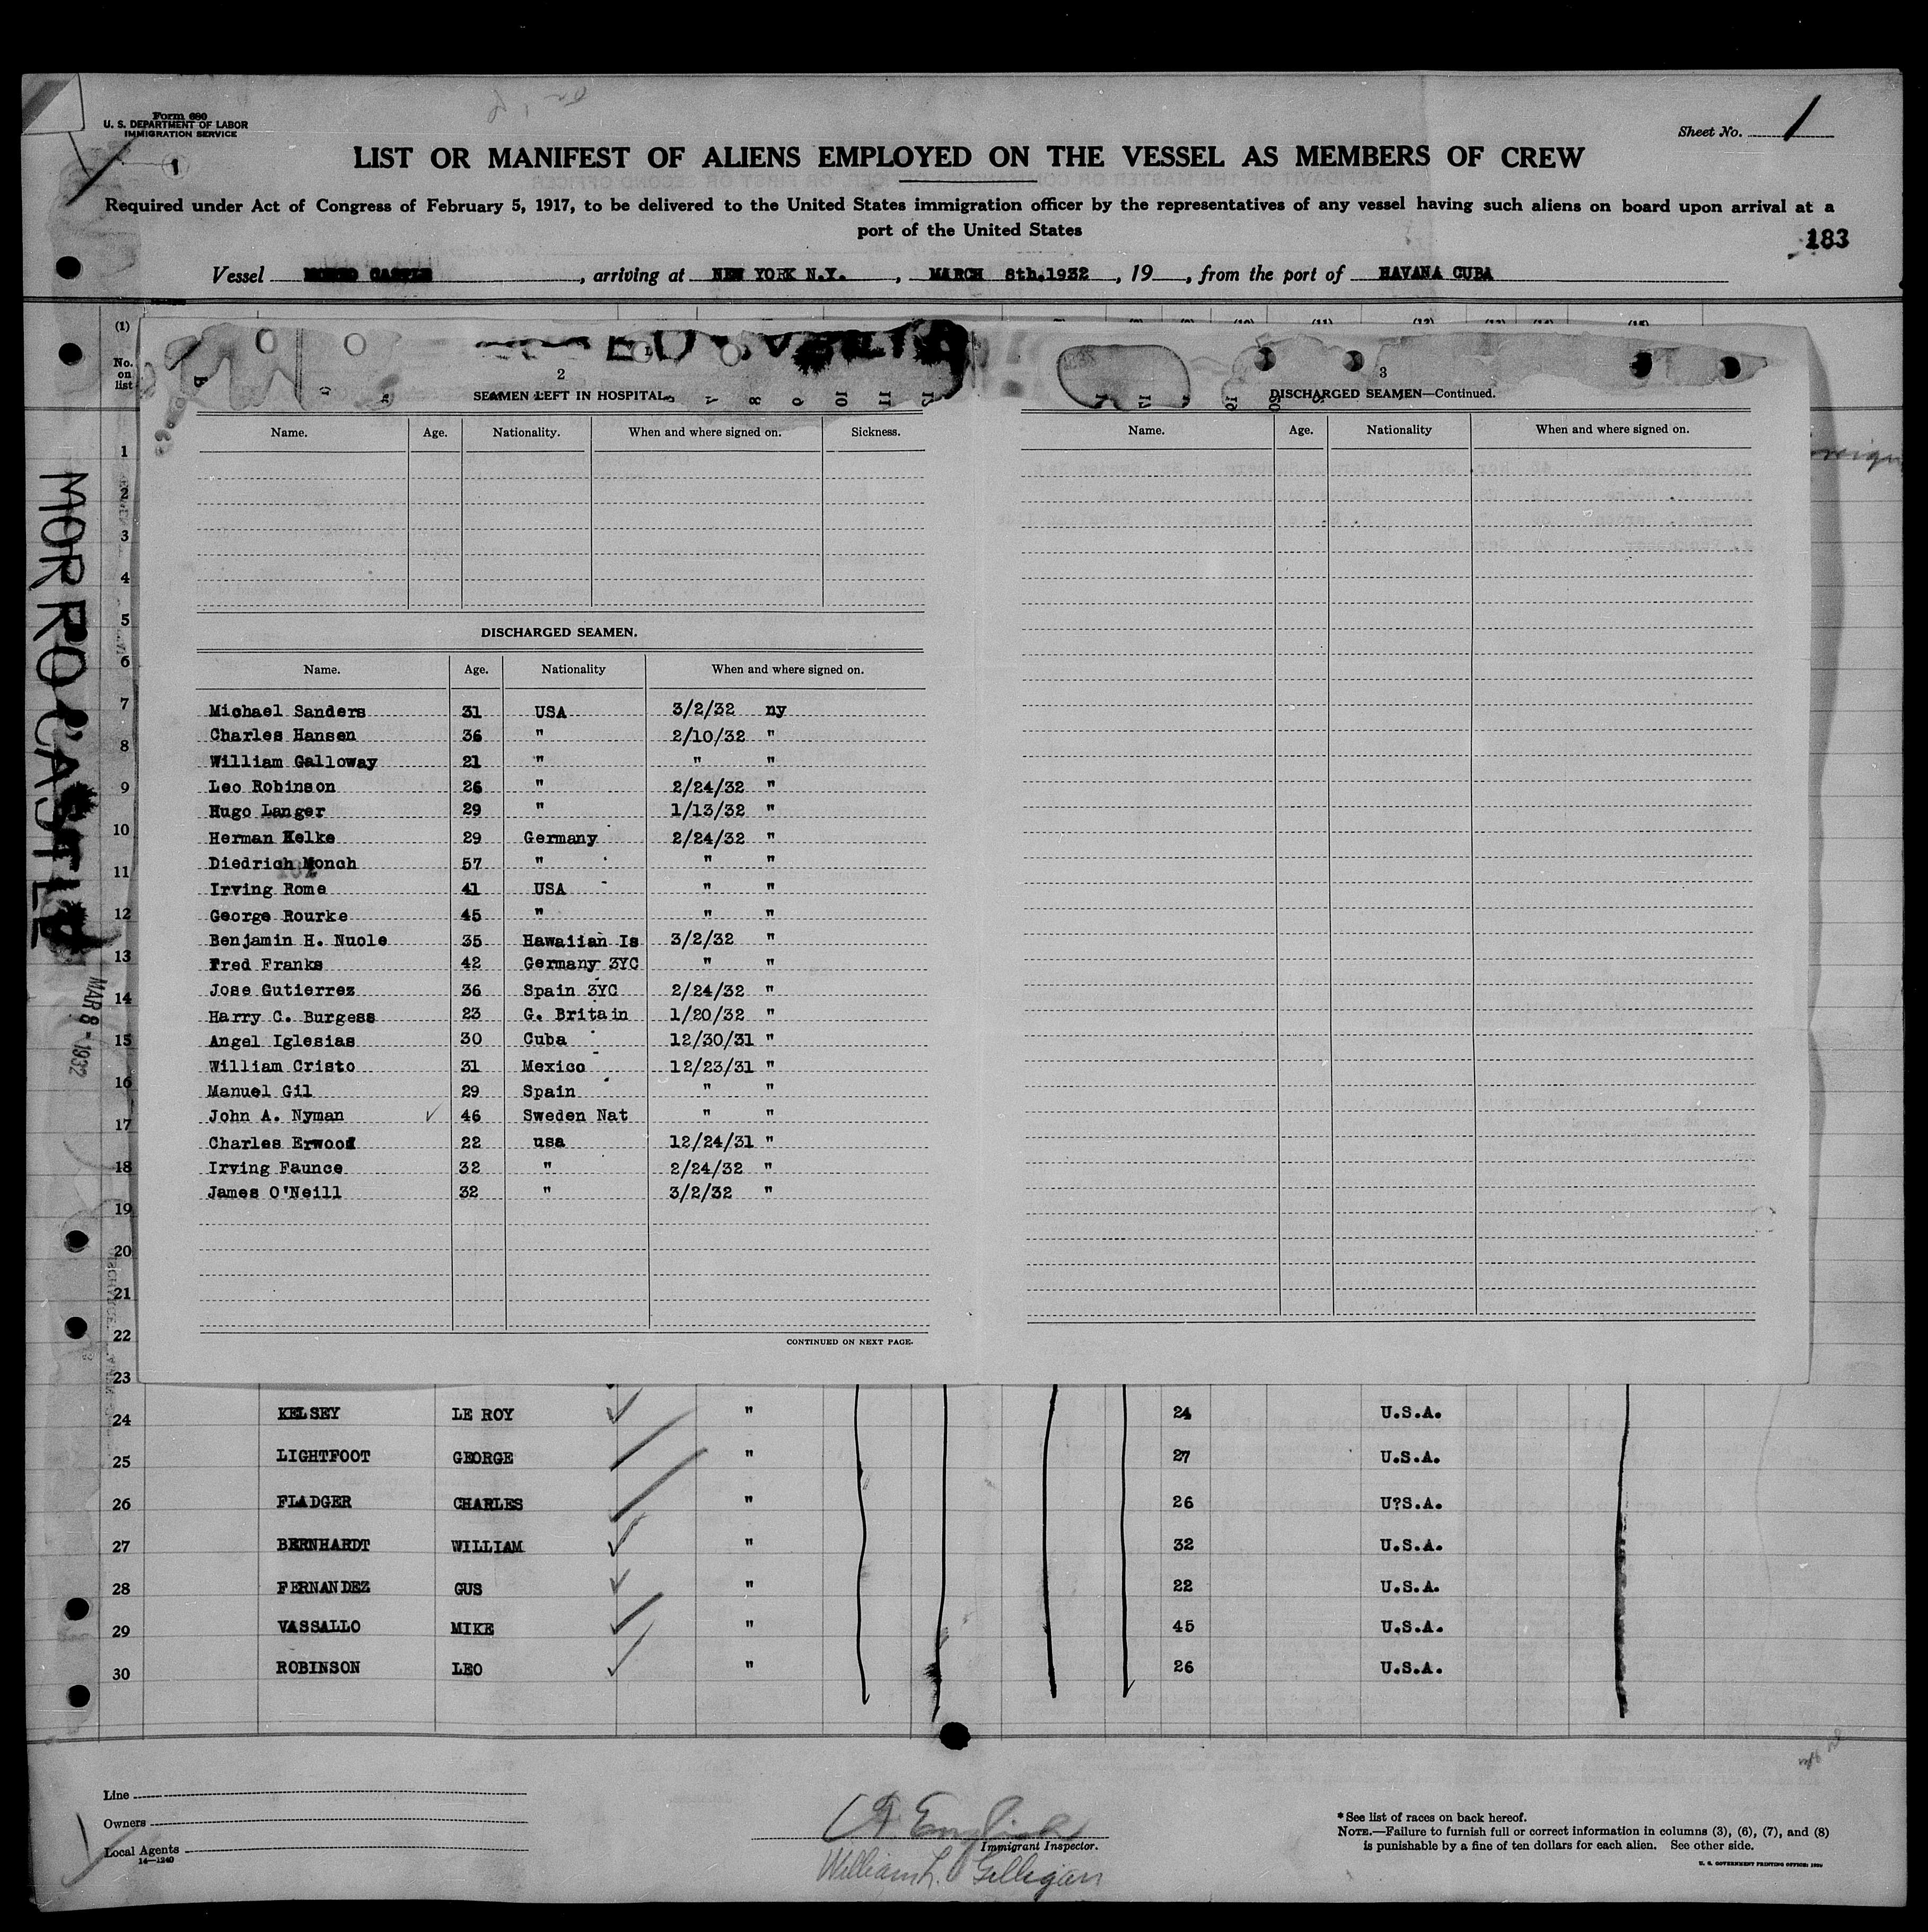 Form 680
U. S. DEPARTMENT OF LABOR
IMMIGRATION SERVICE
1
Sheet No. 1
LIST OR MANIFEST OF ALIENS EMPLOYED ON THE VESSEL AS MEMBERS OF CREW
Required under Act of Congress of February 5, 1917, to be delivered to the United States immigration officer by the representatives of any vessel having such aliens on board upon arrival at a
port of the United States
183
Vessel MORRO CASTLE, arriving at NEW YORK N.Y., MARCH 8th.1932, 19, from the port of HAVANA CUBA
(1)
No. on list
MORRO CASTLE
MAR 8 - 1932
2
SEAMEN LEFT IN HOSPITAL
Name. Age. Nationality. When and where signed on. Sickness.
DISCHARGED SEAMEN.
Name. Age. Nationality When and where signed on.
Michael Sanders 31 USA 3/2/32 ny
Charles Hansen 36 " 2/10/32 "
William Galloway 21 " " "
Leo Robinson 26 " 2/24/32 "
Hugo Langer 29 " 1/13/32 "
Herman Helke 29 Germany 2/24/32 "
Diedrich Monch 57 " " "
Irving Rome 41 USA " "
George Rourke 45 " " "
Benjamin H. Nuole 35 Hawaiian Is 3/2/32 "
Fred Franks 42 Germany 3YC " "
Jose Gutierrez 36 Spain 3YC 2/24/32 "
Harry C. Burgess 23 G. Britain 1/20/32 "
Angel Iglesias 30 Cuba 12/30/31 "
William Cristo 31 Mexico 12/23/31 "
Manuel Gil 29 Spain " "
John A. Nyman 46 Sweden Nat " "
Charles Erwood 22 usa 12/24/31 "
Irving Faunce 32 " 2/24/32 "
James O'Neill 32 " 3/2/32 "
CONTINUED ON NEXT PAGE.
3
DISCHARGED SEAMEN—Continued.
Name. Age. Nationality When and where signed on.
1
2
3
4
5
6
7
8
9
10
11
12
13
14
15
16
17
18
19
20
21
22
23
24 KELSEY LE ROY " 24 U.S.A.
25 LIGHTFOOT GEORGE " 27 U.S.A.
26 FLADGER CHARLES " 26 U?S.A.
27 BERNHARDT WILLIAM " 32 U.S.A.
28 FERNANDEZ GUS " 22 U.S.A.
29 VASSALLO MIKE " 45 U.S.A.
30 ROBINSON LEO " 26 U.S.A.
Line
Owners
Local Agents
14—1240
English
Immigrant Inspector.
William L. Gilligan
* See list of races on back hereof.
NOTE.—Failure to furnish full or correct information in columns (3), (6), (7), and (8)
is punishable by a fine of ten dollars for each alien. See other side.
U. S. GOVERNMENT PRINTING OFFICE: 1930